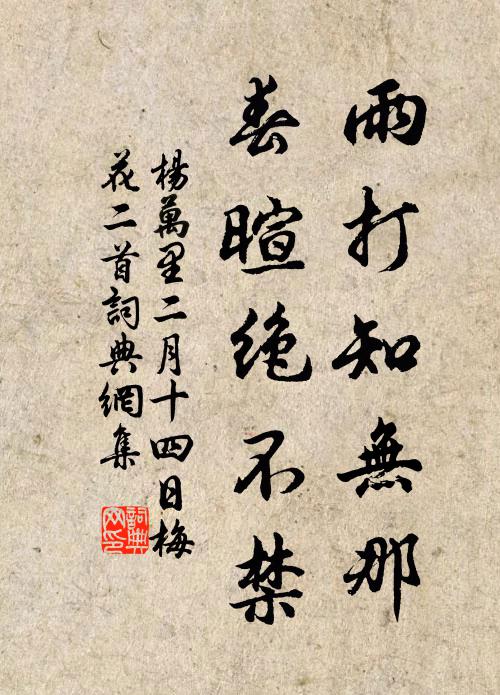 雨打知無那
春暄绝不禁
楊萬里二月十四日梅
花二首詞典網集
詞典网印